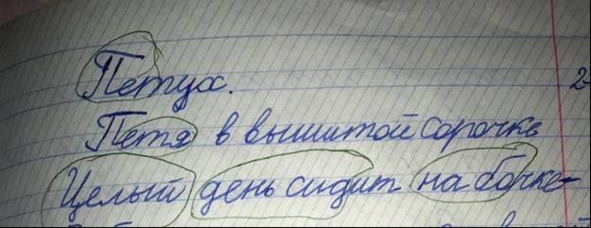 Петух.
2-
Петя в вышитой сорочке
Целый день сидит на бочке-